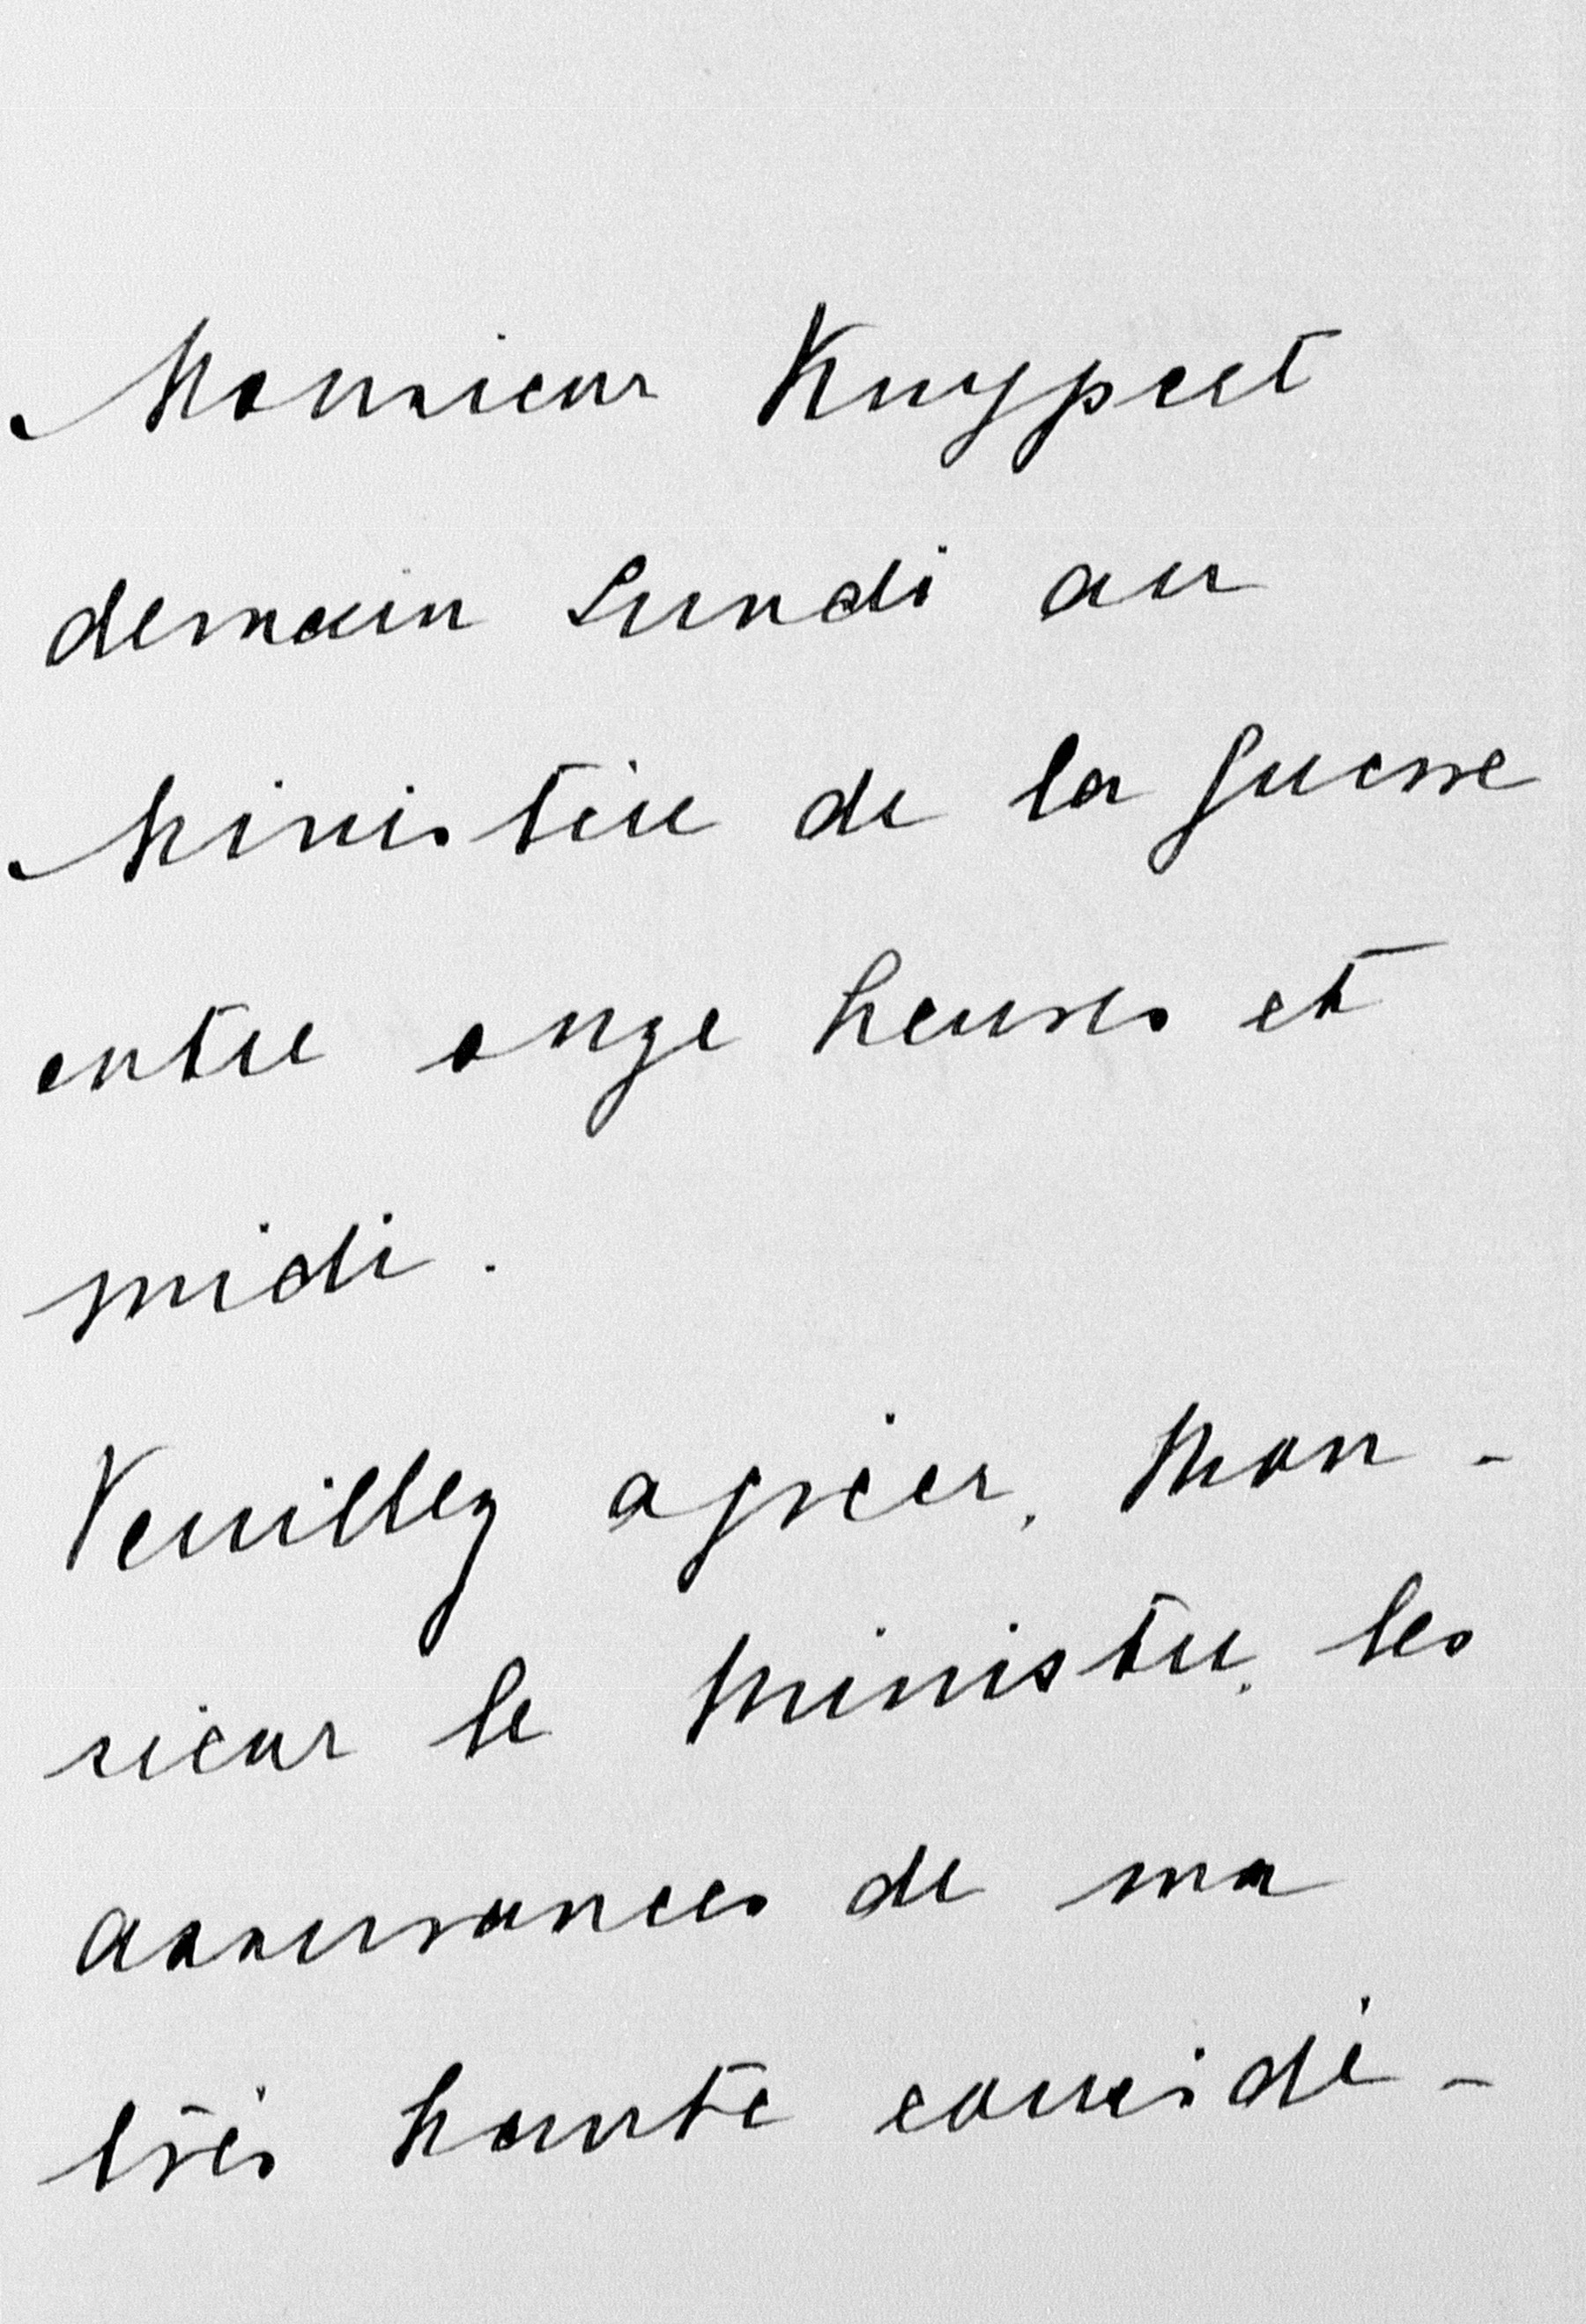 Monsieur Kuypert
demain Lundi au
Ministère de la Guerre
entre onze heures et
midi.
Veuillez agréer, Mon-
sieur le Ministre, les
assurances de ma
très haute considé-